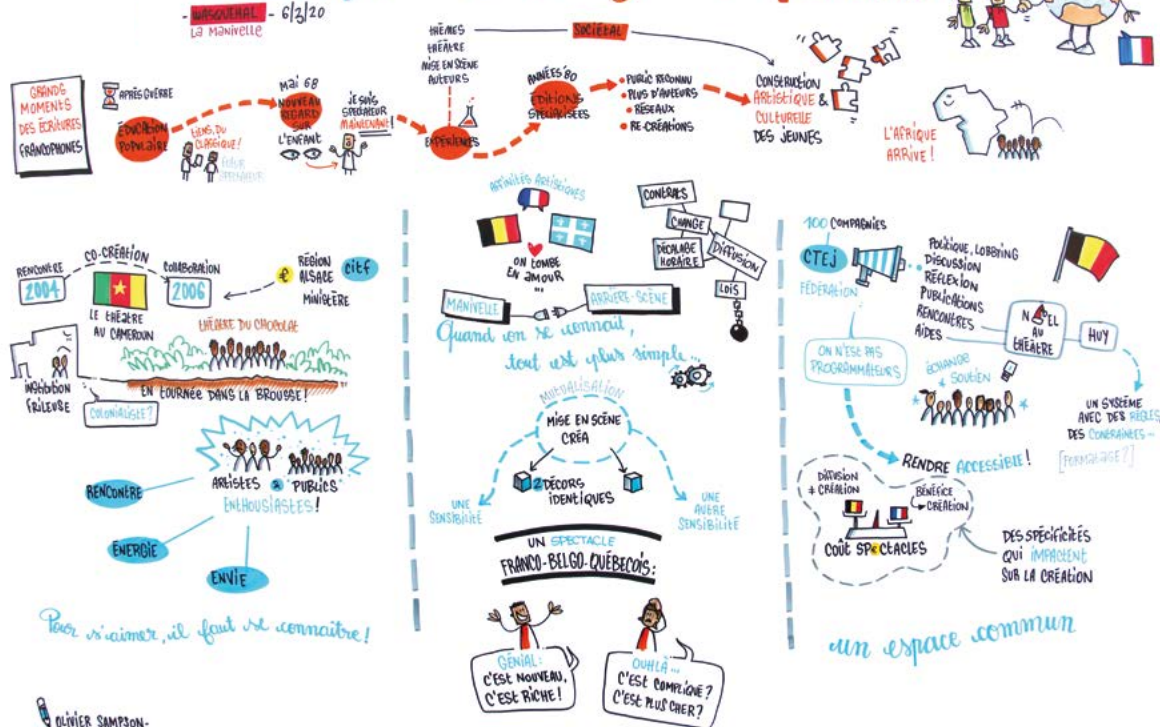 - WASQUEHAL - 6/3/20
LA MANIVELLE
GRANDS
MOMENTS
DES ÉCRITURES
FRANCOPHONES
APRÈS GUERRE
ÉDUCATION
POPULAIRE
TIENS, DU
CLASSIQUE!
FUTUR
SPECTATEUR
MAI 68
NOUVEAU
REGARD
SUR
L'ENFANT
JE SUIS
SPECTATEUR
MAINTENANT!
THÈMES
THÉÂTRE
MISE EN SCÈNE
AUTEURS
EXPÉRIENCES
SOCIÉTAL
ANNÉES '80
ÉDITIONS
SPÉCIALISÉES
• PUBLIC RECONNU
• PLUS D'AUTEURS
• RÉSEAUX
• RE-CRÉATIONS
CONSTRUCTION
ARTISTIQUE &
CULTURELLE
DES JEUNES
L'AFRIQUE
ARRIVE!
RENCONTRE
2004
CO-CRÉATION
LE THÉÂTRE
AU CAMEROUN
COLLABORATION
2006
€
RÉGION
ALSACE
MINISTÈRE
CITF
THÉÂTRE DU CHOCOLAT
INSTITUTION
FRILEUSE
COLONIALISTE?
EN TOURNÉE DANS LA BROUSSE!
ARTISTES & PUBLICS
ENTHOUSIASTES!
RENCONTRE
ÉNERGIE
ENVIE
Pour s'aimer, il faut se connaître!
AFFINITÉS ARTISTIQUES
ON TOMBE
EN AMOUR
...
MANIVELLE
ARRIÈRE-SCÈNE
CONTRATS
CHANGE
DÉCALAGE
HORAIRE
DIFFUSION
LOIS
Quand on se connait,
tout est plus simple...
MUTUALISATION
MISE EN SCÈNE
CRÉA
2 DÉCORS
IDENTIQUES
UNE
SENSIBILITÉ
UNE
AUTRE
SENSIBILITÉ
UN SPECTACLE
FRANCO-BELGO-QUÉBECOIS:
GÉNIAL:
C'EST NOUVEAU,
C'EST RICHE!
OUHLÀ...
C'EST COMPLIQUÉ?
C'EST PLUS CHER?
100 COMPAGNIES
CTEJ
FÉDÉRATION
POLITIQUE, LOBBYING
DISCUSSION
RÉFLEXION
PUBLICATIONS
RENCONTRES
AIDES
NOËL
AU
THÉÂTRE
HUY
ON N'EST PAS
PROGRAMMATEURS
ÉCHANGE
SOUTIEN
UN SYSTÈME
AVEC DES RÈGLES
DES CONTRAINTES -
[FORMATAGE?]
RENDRE ACCESSIBLE!
DIFFUSION
≠ CRÉATION
BÉNÉFICE
CRÉATION
COÛT SPECTACLES
DES SPÉCIFICITÉS
QUI IMPACTENT
SUR LA CRÉATION
un espace commun
OLIVIER SAMPSON-